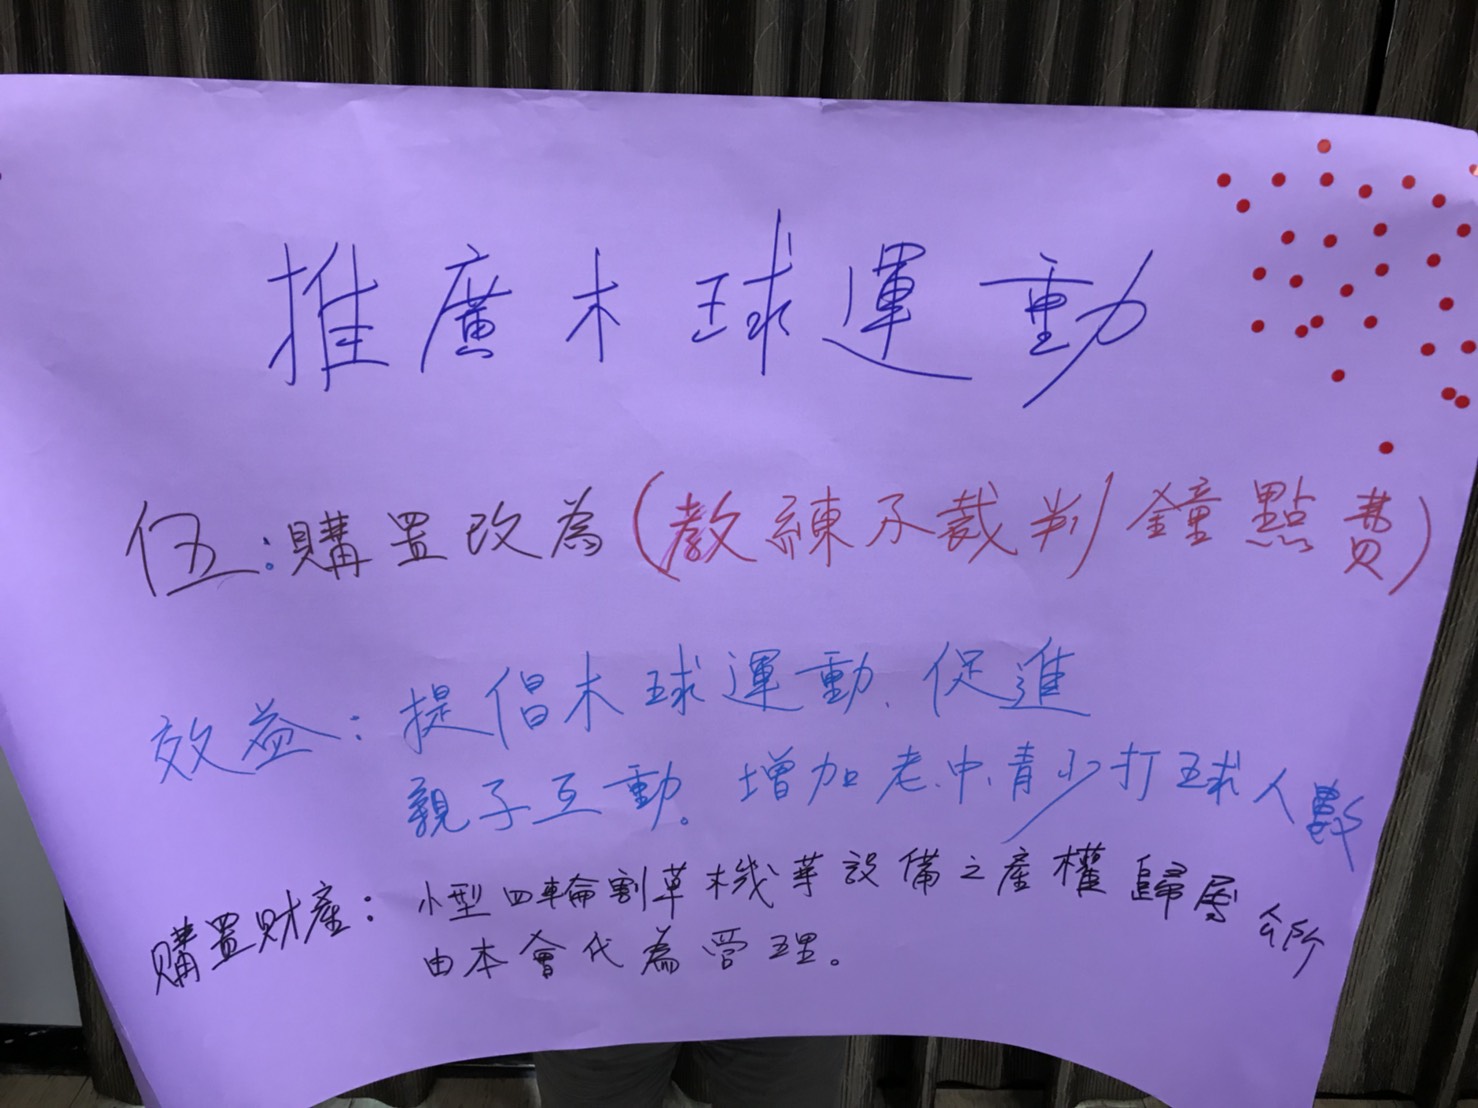 推廣木球運動
伍:購置改為(教練及裁判鐘點費)
效益:提倡木球運動、促進
親子互動。增加老、中、青少打球人數
購置財產:小型四輪割草機等設備之產權歸屬公所
由本會代為管理。